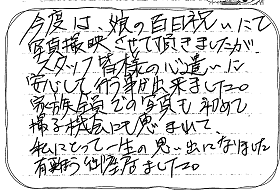 今度は、娘の百日祝いにて
写真撮映させて頂きましたが、
スタッフ皆様の心遣いに
安心して行う事が出来ました。
家族全員での写真も初めて
撮る機会にも恵まれて、
私にとって一生の思い出になりました
有難う御座居ました。